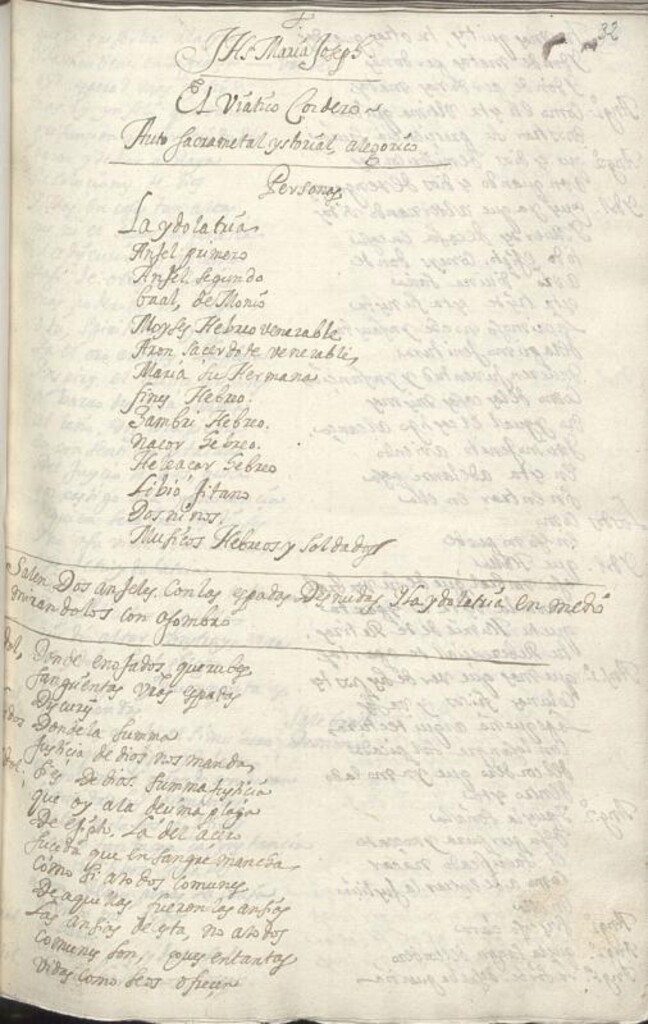 32
JHs María Joseph
El Viatico Cordero
Auto Sacrametal ystorial, alegorico
Personas
La ydolatria
Anjel primero
Anjel segundo
baal, de Monio
Moyses Hebreo venerable
Aron sacerdote venerable
Maria su Hermana
fines Hebreo.
Zambri Hebreo.
nacor hebreo.
Heleacar hebreo
Libio Jitano
Dos ninos.
Musicos Hebreos y soldados
Salen Dos anjeles. Con las espadas Desnudas y la ydolatria en medio
mirandolos con asombro
dol, Donde enojados querubes
sangrientas vras espadas
Discurris
Donde la summa
Justicia de dios nos manda,
dol. si es de dios. summa justicia
que oy a la decima plaga
De ejiph. la del
suceda que en sangre mancha
como si arodos comunes
De aquellas fueron las ansias
las ansias de esta, no arodos
comunes son, pues en tantas
vidas como